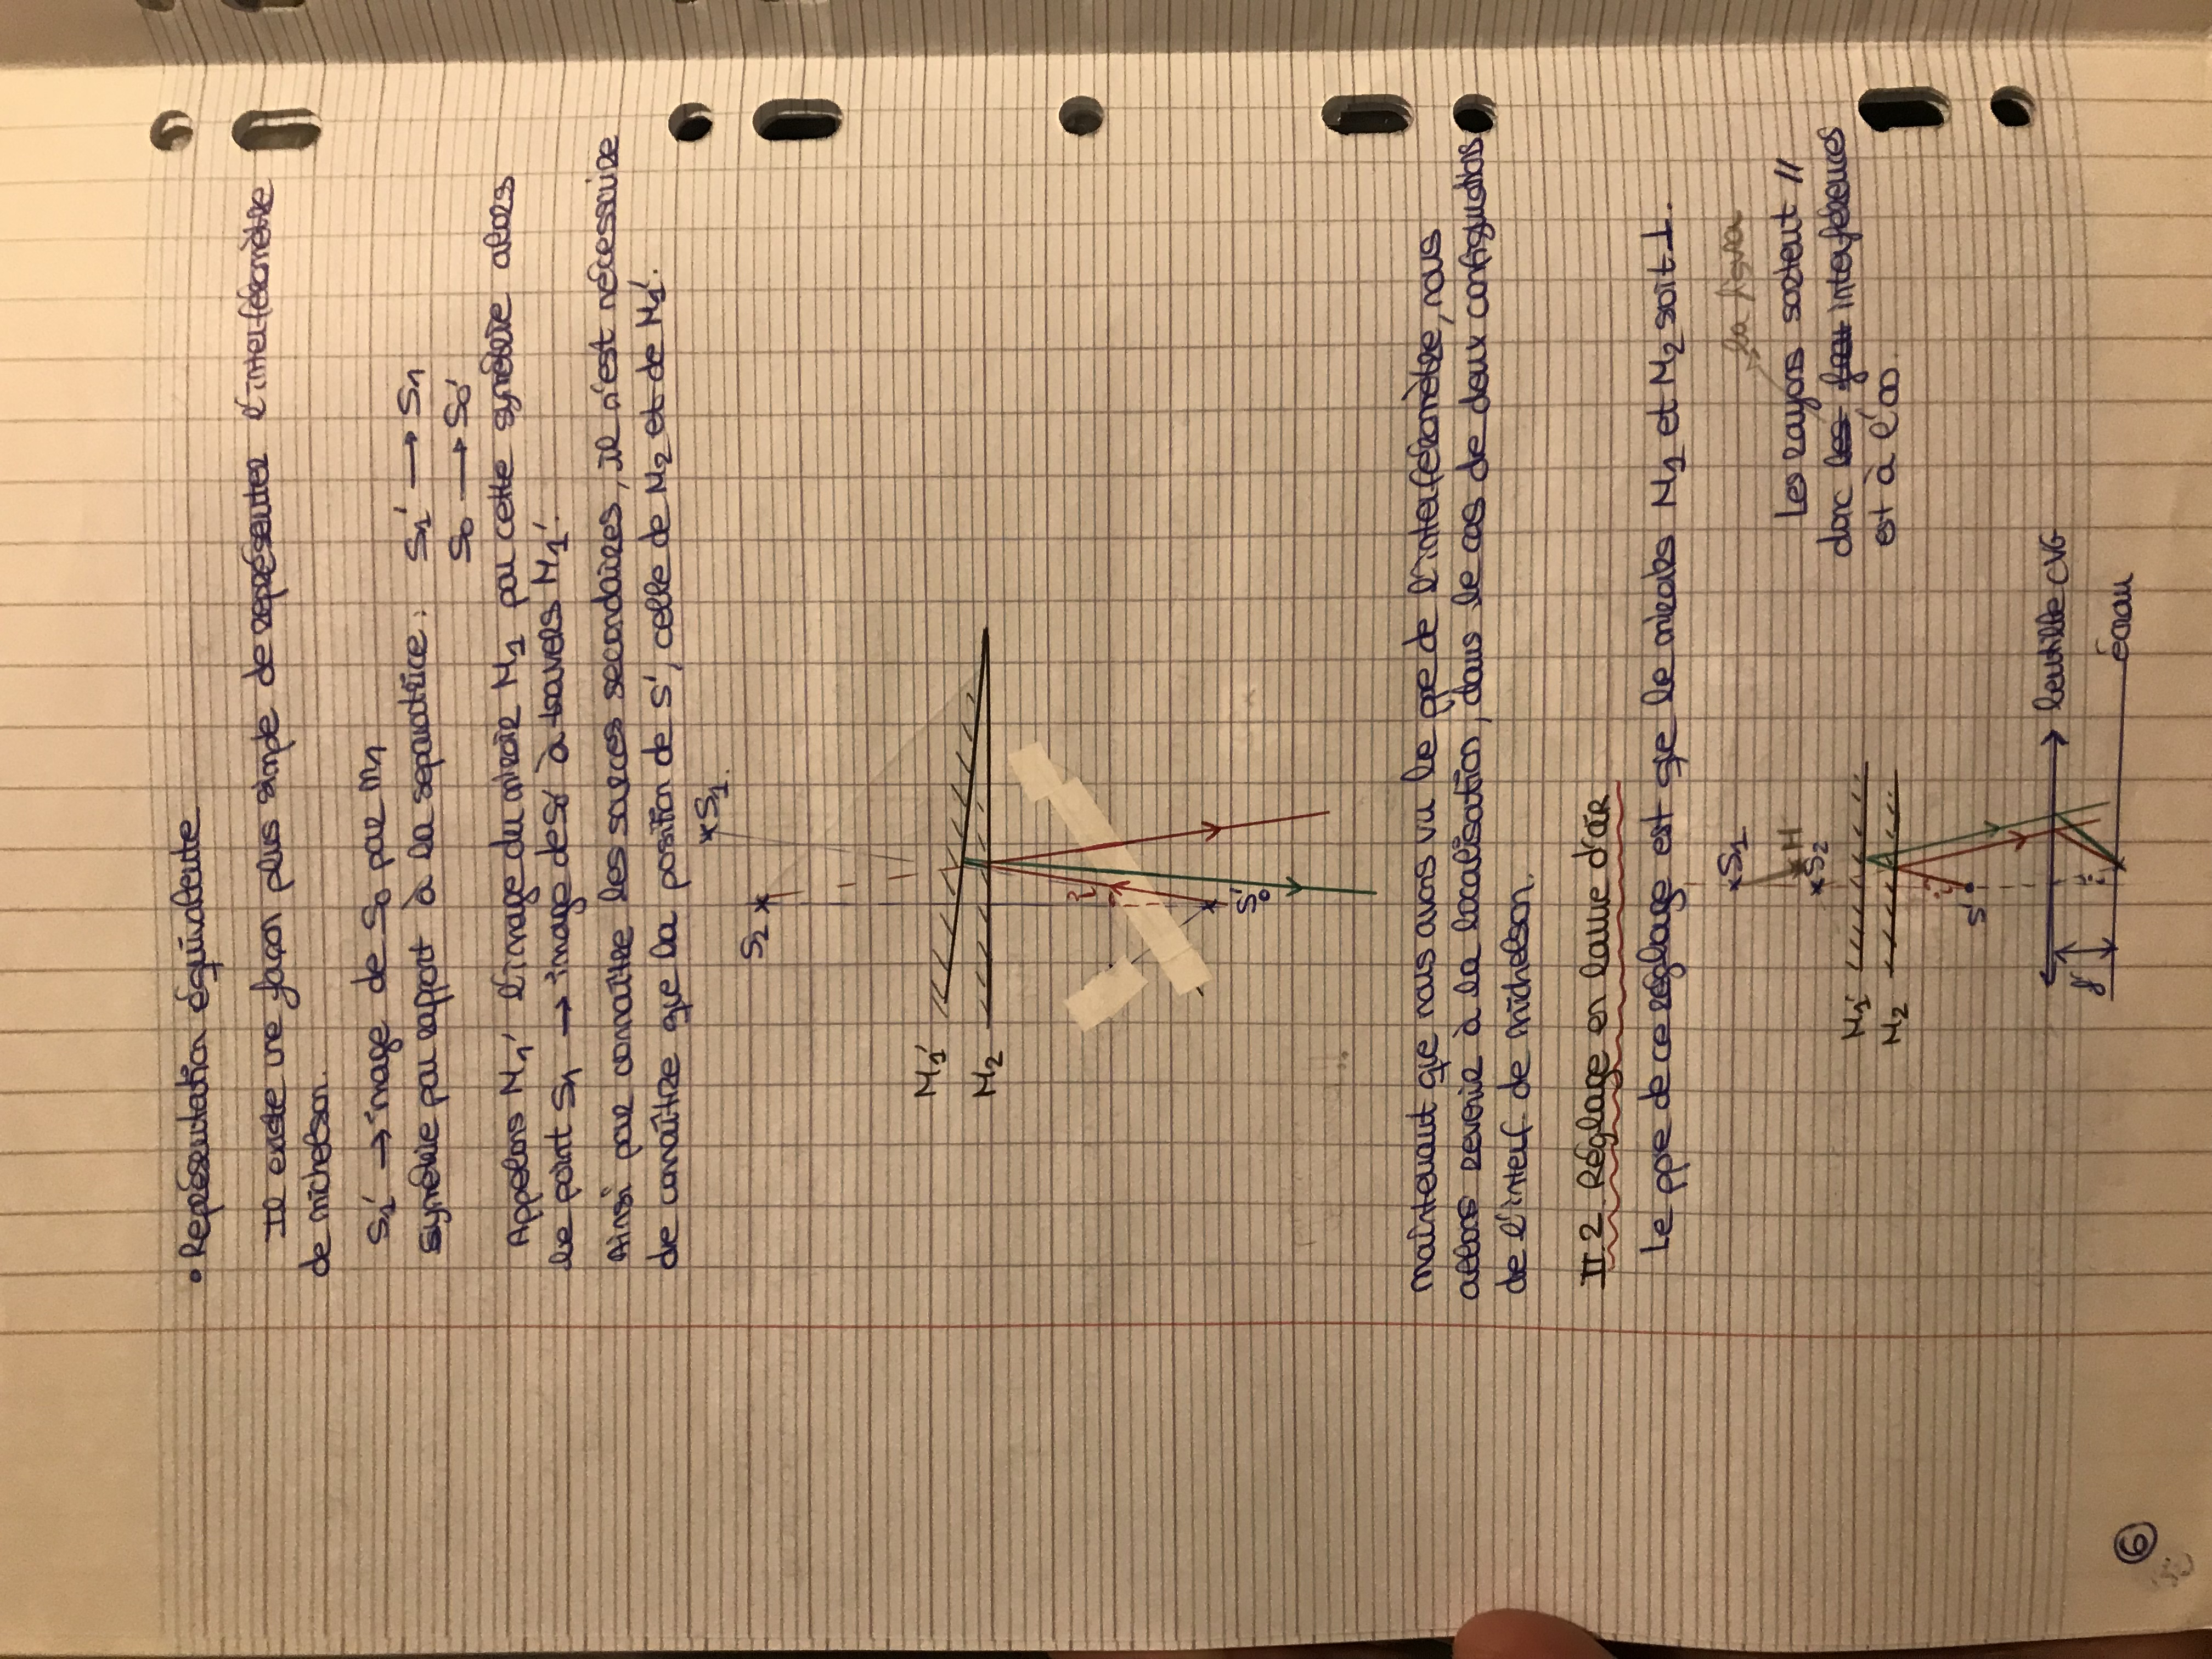 • Représentation équivalente
Il existe une façon plus simple de représenter l'interféromètre
de michelson.
S1' → image de S0 par M1
symétrie par rapport à la séparatrice : S1' → S1
S0 → S0'
Appelons M1' l'image du miroir M1 par cette symétrie alors
le point S1 → image de S' à travers M1'.
Ainsi pour connaître les sources secondaires, il n'est nécessaire
de connaître que la position de S', celle de M2 et de M1'.
S1
S2
M1'
M2
i
S0'
maintenant que nous avons vu le ppe de l'interféromètre, nous
allons revenir à la localisation, dans le cas de deux configurations
de l'interf. de michelson.
II.2 Réglage en lame d'air
Le ppe de ce réglage est que le miroirs M1 et M2 soit ⊥.
S1
H
S2
la
Les rayons sortent //
donc les interférences
est à l'∞
M1'
M2
i
S'
lentille CVG
f'
i
écran
6